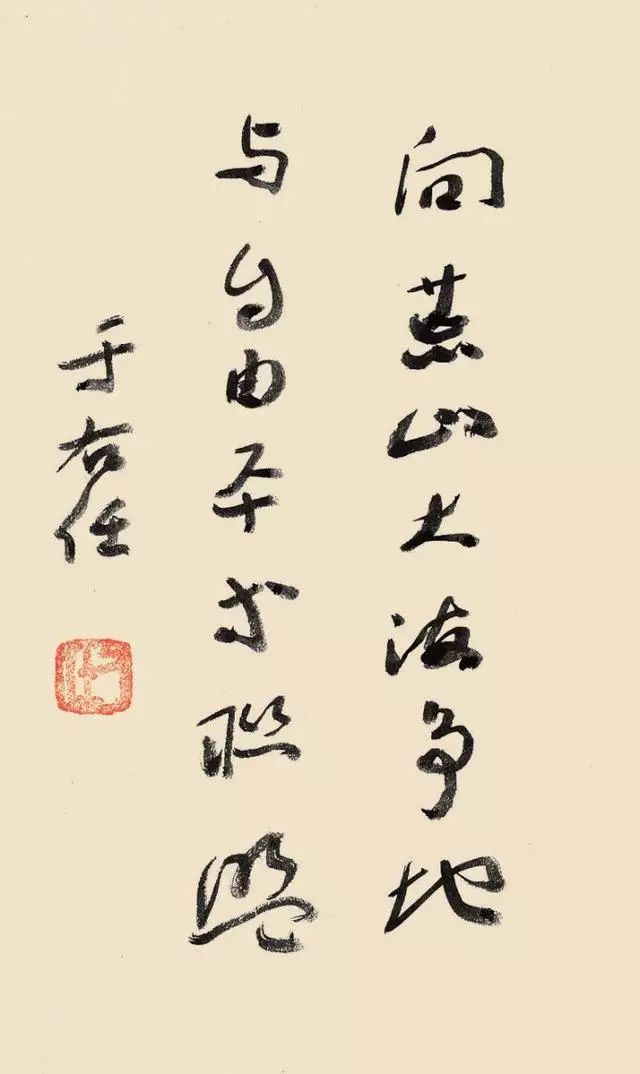 向荒山大海争地
与自由平等联盟
于右任